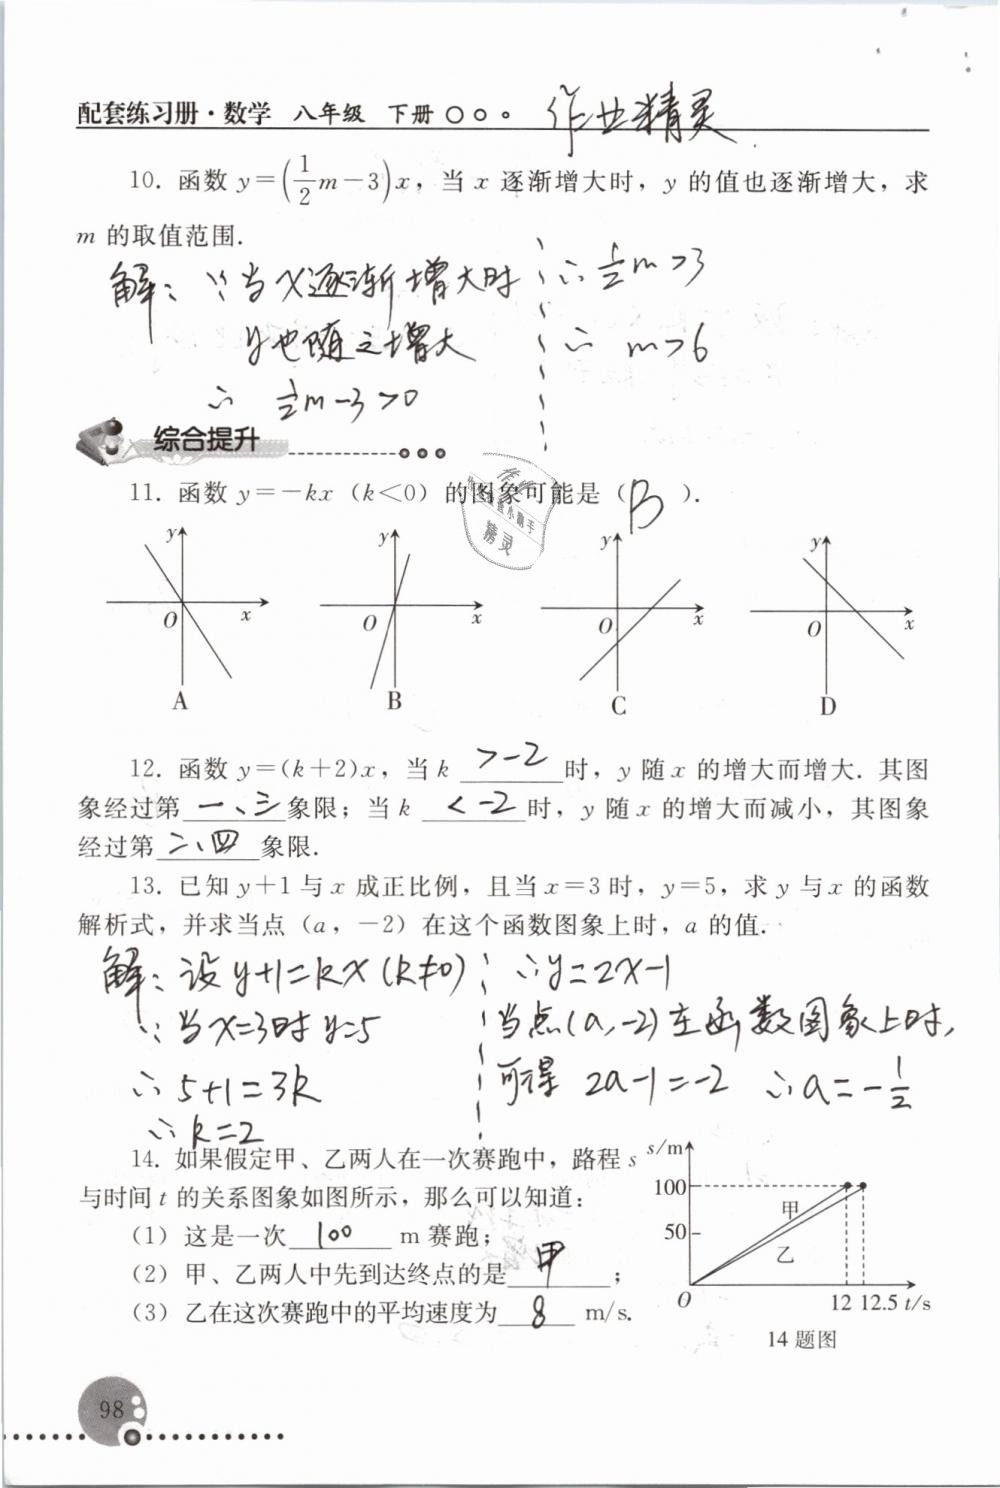 配套练习册·数学 八年级 下册 作业精灵
10. 函数 y=(1/2 m-3)x，当 x 逐渐增大时，y 的值也逐渐增大，求
m 的取值范围.
解：∵当x逐渐增大时
y也随之增大
∴ 1/2 m-3>0
∴ 1/2 m>3
∴ m>6
综合提升
11. 函数 y=-kx（k<0）的图象可能是（B）.
y O x A
y O x B
y O x C
y O x D
作业
检查小助手
精灵
12. 函数 y=(k+2)x，当 k >-2 时，y 随 x 的增大而增大. 其图
象经过第 一、三 象限；当 k <-2 时，y 随 x 的增大而减小，其图象
经过第 二、四 象限.
13. 已知 y+1 与 x 成正比例，且当 x=3 时，y=5，求 y 与 x 的函数
解析式，并求当点（a，-2）在这个函数图象上时，a 的值.
解：设y+1=kx(k≠0)
∵当x=3时y=5
∴5+1=3k
∴k=2
∴y=2x-1
当点(a,-2)在函数图象上时,
可得 2a-1=-2 ∴a=-1/2
14. 如果假定甲、乙两人在一次赛跑中，路程 s
与时间 t 的关系图象如图所示，那么可以知道：
(1) 这是一次 100 m 赛跑；
(2) 甲、乙两人中先到达终点的是 甲 ；
(3) 乙在这次赛跑中的平均速度为 8 m/s.
s/m
100
甲
50
乙
O 12 12.5 t/s
14 题图
98